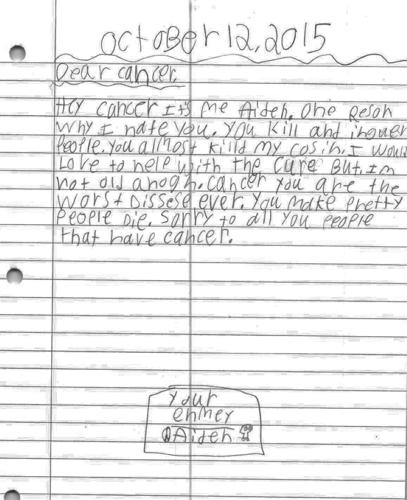 OctOBer 12, 2015
Dear cancer,
Hey cancer It's me Aiden. One Reson
why I hate you. You kill and inguer
People. You allmost killd my cosin. I would
Love to help with the cure But. I'm
not old anogh. cancer you are the
worst Dissese ever. You make Pretty
People Die. Sorry to all you people
that have cancer.
Your
enmey
Aiden